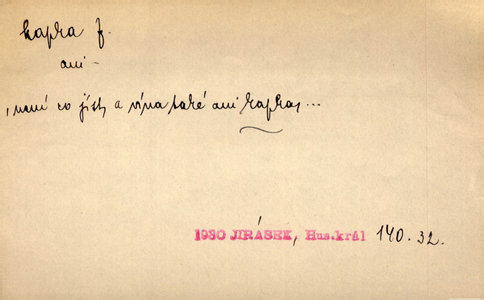 kapka f.
ani -
, není co jísti, a vína také ani kapka, ...
1930 JIRÁSEK, Hus.král 140. 32.